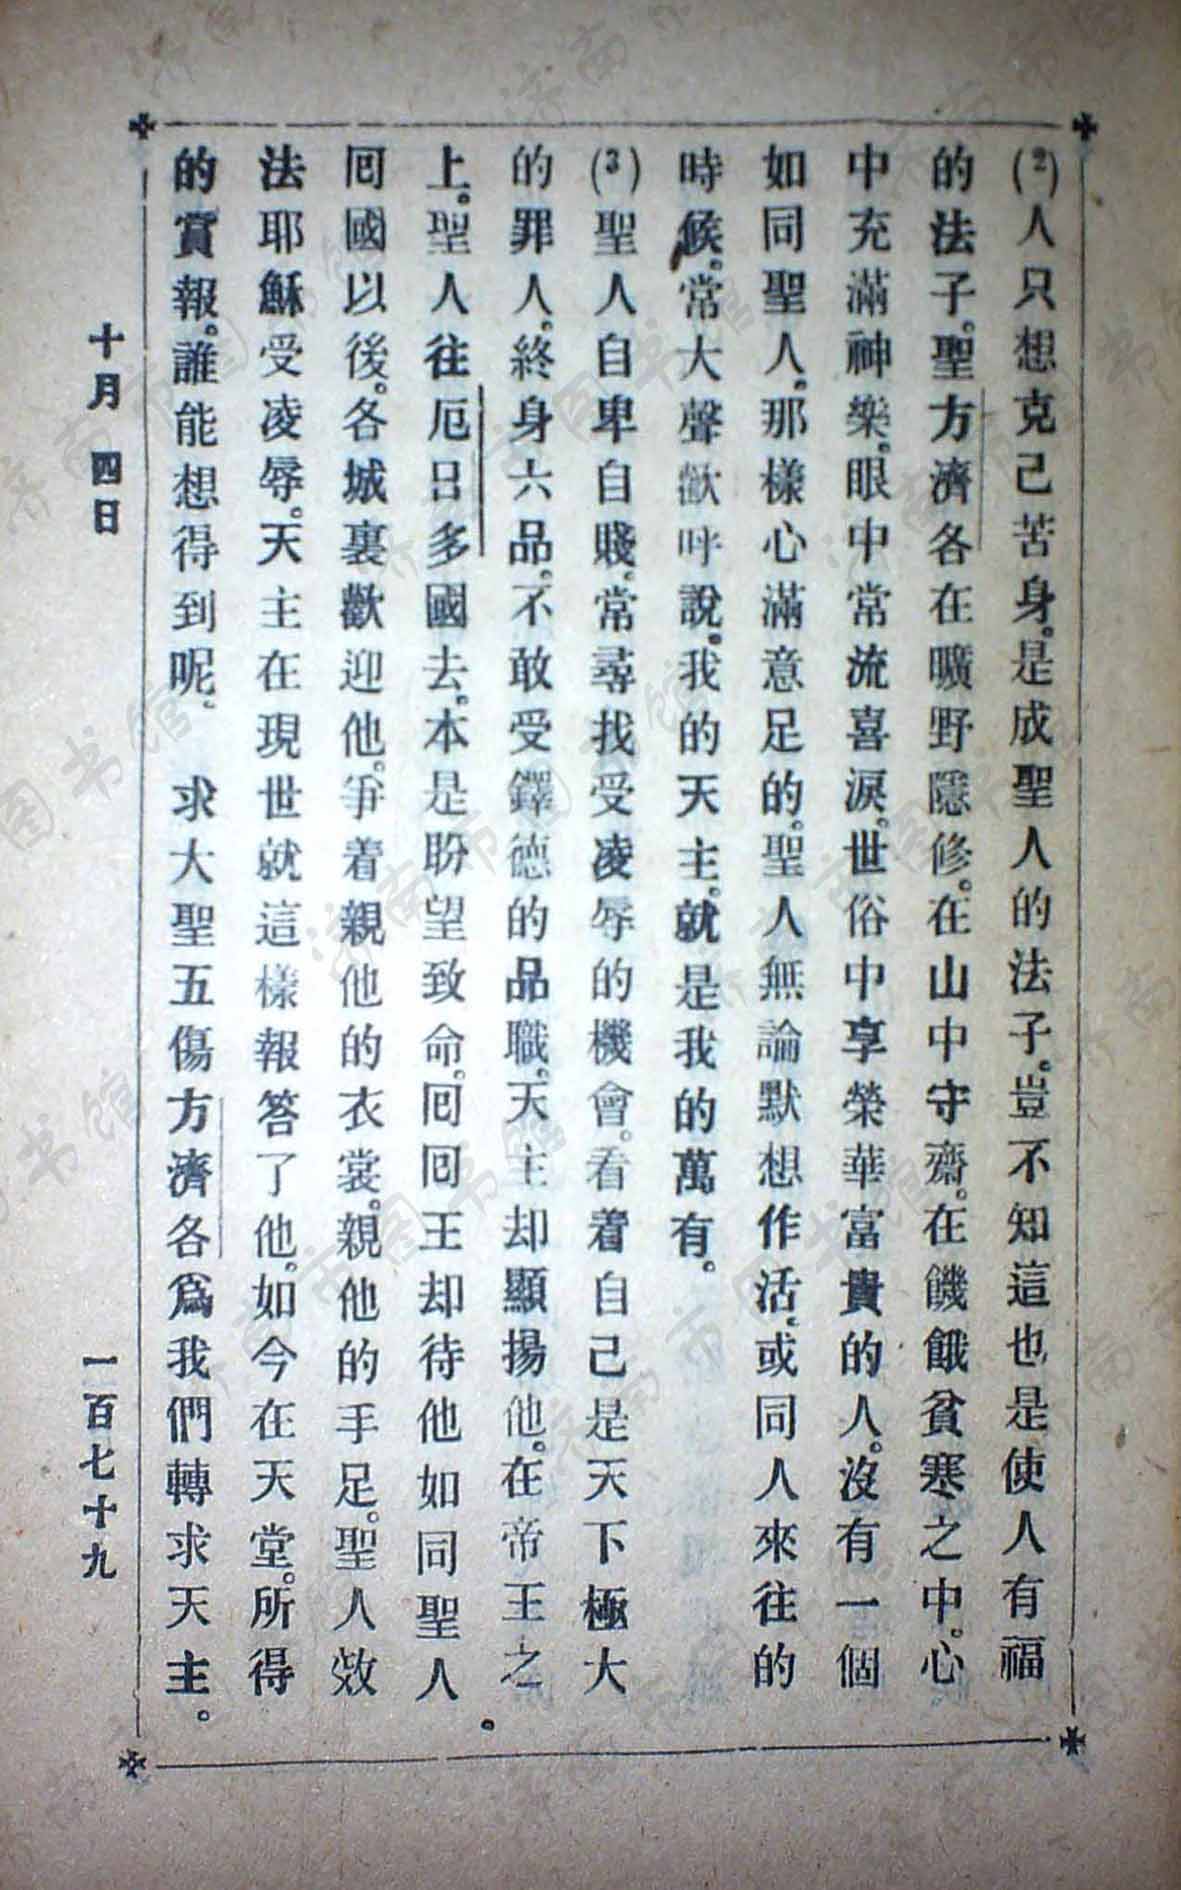 (2)人只想克己苦身。是成聖人的法子。豈不知這也是使人有福
的法子。聖方濟各在曠野隱修。在山中守齋。在饑餓貧寒之中。心
中充滿神樂。眼中常流喜淚。世俗中享榮華富貴的人。沒有一個
如同聖人。那樣心滿意足的。聖人無論默想作活。或同人來往的
時候。常大聲歡呼說。我的天主。就是我的萬有。
(3)聖人自卑自賤。常尋找受凌辱的機會。看着自己是天下極大
的罪人。終身六品。不敢受鐸德的品職。天主却顯揚他。在帝王之
上。聖人往厄日多國去。本是盼望致命。囘囘王却待他如同聖人。
囘國以後。各城裏歡迎他。爭着親他的衣裳。親他的手足。聖人效
法耶穌受凌辱。天主在現世就這樣報答了他。如今在天堂。所得
的賞報。誰能想得到呢。 求大聖五傷方濟各爲我們轉求天主。
十月 四日
一百七十九
济南市图书馆